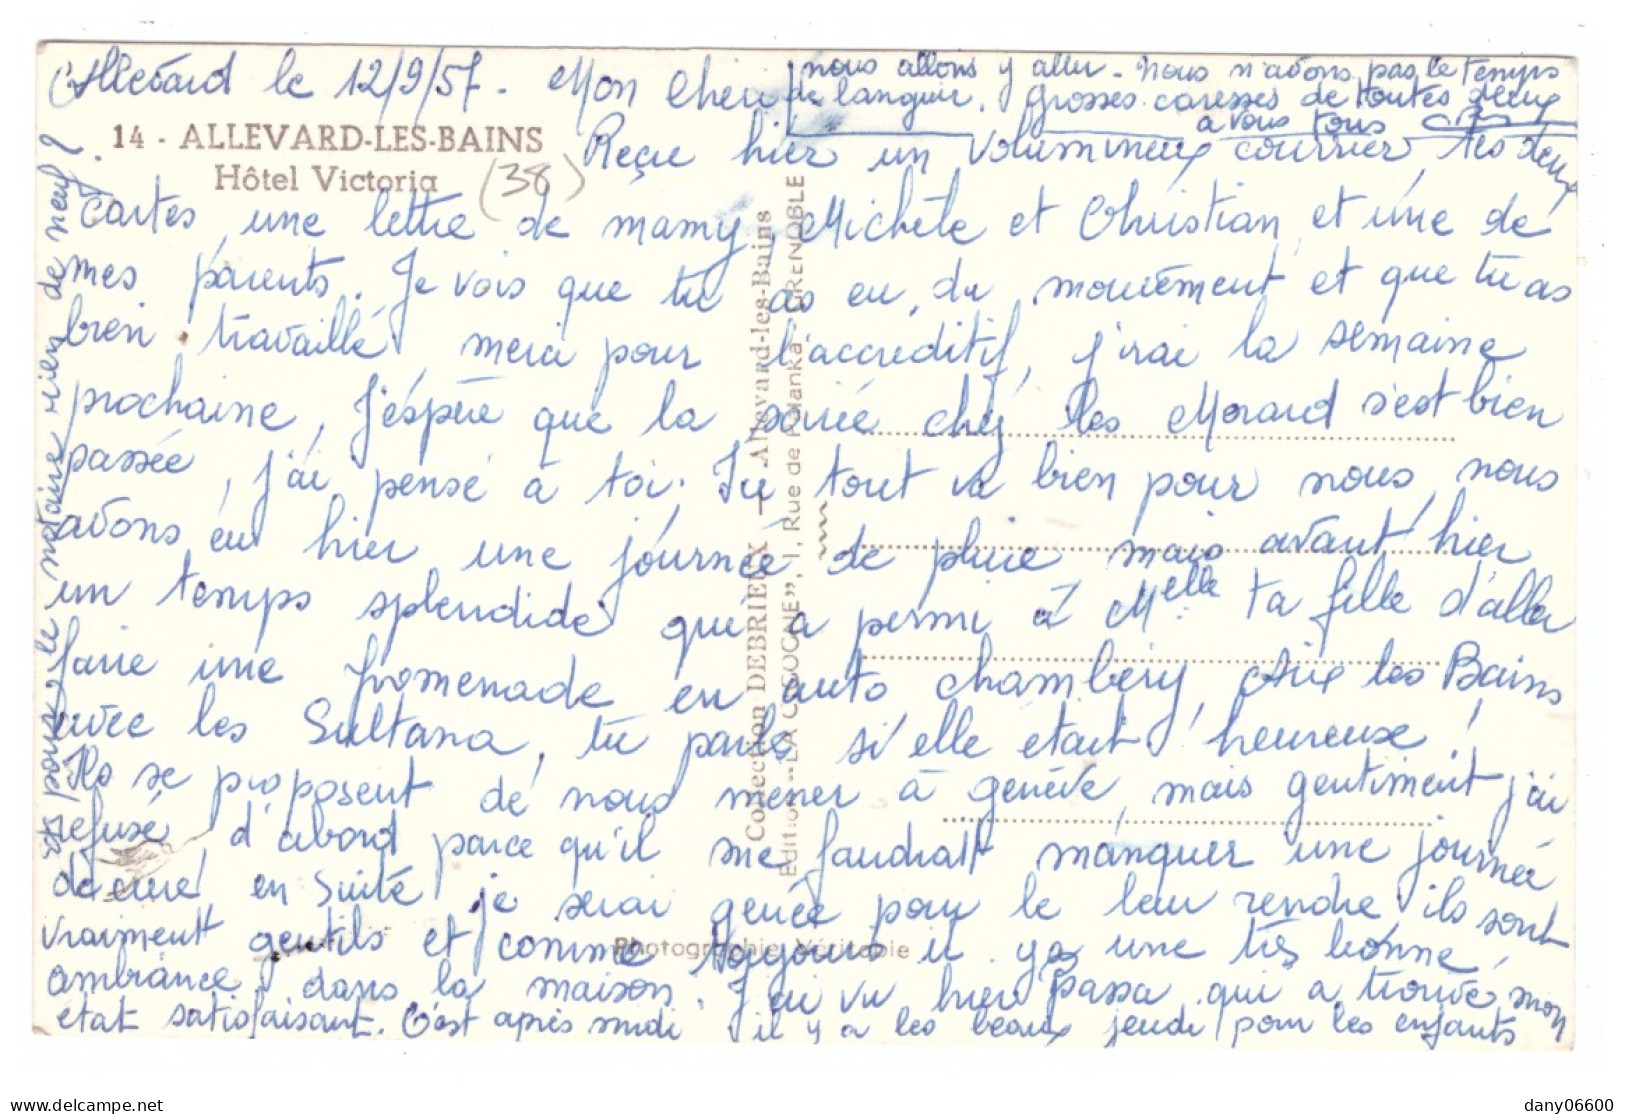 Allevard le 12/9/57. Mon Cheri
14 - ALLEVARD-LES-BAINS
Hôtel Victoria (38)
Reçue hier un volumineux courrier, tes deux
cartes, une lettre de mamy, Michèle et Christian, et une de
mes parents. Je vois que tu as eu du mouvement et que tu as
bien travaillé, merci pour l'accréditif, j'irai la semaine
prochaine, J'espère que la soirée chez les Morard s'est bien
passée, j'ai pensé à toi. Ici tout va bien pour nous, nous
avons eu hier une journée de pluie mais avant hier
un temps splendide qui a permi à Melle ta fille d'aller
faire une promenade en auto Chambéry, Aix les Bains
avec les Sultana, tu parles si elle était heureuse !
Ils se proposent de nous mener à genève, mais gentiment j'ai
refusé, d'abord parce qu'il me faudrait manquer une journée
de cure, en suite je serai genée pour le leur rendre ils sont
vraiment gentils et comme toujours il y a une très bonne
ambiance dans la maison. J'ai vu hier Passa qui a trouvé mon
état satisfaisant. C'est après midi il y a les beaux jeudi pour les enfants
nous allons y aller. Nous n'avons pas le temps
de languir. Grosses caresses de toutes deux
a vous tous
et pour le notaire rien de neuf ?
Collection DEBRIEUX — Allevard-les-Bains
Edition "LA CIGOGNE", 1, Rue de Palanka - GRENOBLE
Photographie Véritable
dany06600